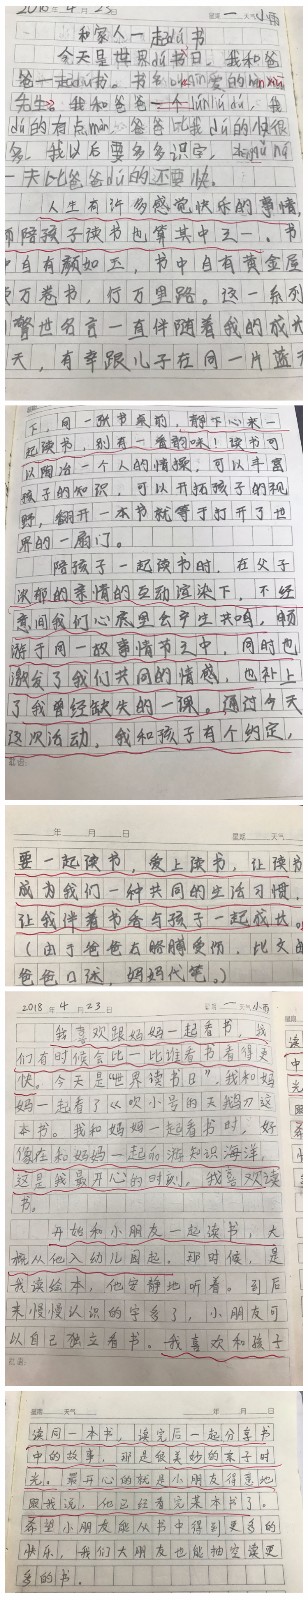 2018 年 4 月 23 日 星期 一 天气 小雨
和家人一起dú书
今天是世界dú书日,我和爸
爸一起dú书。书名
先生》。我和爸爸一个
dú的有点màn,爸爸比我dú的快很
多,我以后要多多识字,
一天比爸爸dú的还要快。
人生有许多感觉快乐的事情,
而陪孩子读书也算其中之一。书
中自有颜如玉,书中自有黄金屋
读万卷书,行万里路。这一系列
警世名言一直伴随着我的成长
天,有幸跟儿子在同一片蓝天
下,同一张书桌前,静下心来一
起读书,别有一番韵味!读书可
以陶冶一个人的情操,可以丰富
孩子的知识,可以开拓孩子的视
野,翻开一本书就等于打开了世
界的一扇门。
陪孩子一起读书时,在父子
浓郁的亲情的互动渲染下,不经
意间我们心底里会产生共鸣,畅
游于同一故事情节之中,同时也
激发了我们共同的情感,也补上
了我曾经缺失的一课。通过今天
这次活动,我和孩子有个约定,
年 月 日 星期 天气
要一起读书,爱上读书,让读书
成为我们一种共同的生活习惯,
让我伴着书香与孩子一起成长。
(由于爸爸右胳膊受伤,此文由
爸爸口述,妈妈代笔。)
2018 年 4 月 23 日 星期 一 天气 小雨
我喜欢跟妈妈一起看书,我
们有时候会比一比谁看书看得更
快。今天是“世界读书日”,我和妈
妈一起看了《吹小号的天鹅》这
本书。我和妈妈一起看书时,好
像在和妈妈一起

游知识海洋,
这是我最开心的时刻,我喜欢读
书。
开始和小朋友一起读书,大
概从他入幼儿园起。那时候,是
我读绘本,他安静地听着。到后
来慢慢认识的字多了,小朋友可
以自己独立看书。我喜欢和孩子
星期 天气 年 月 日
读同一本书,读完后一起分享书
中的故事,那是很美妙的亲子时
光。最开心的就是小朋友得意地
跟我说,他已经看完某本书了。
希望小朋友能从书中得到更多的
快乐,我们大朋友也能抽空读更
多的书。